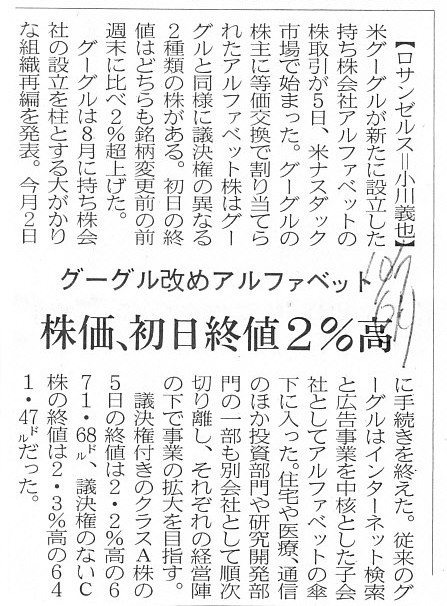 グーグル改めアルファベット
株価、初日終値２％高
【ロサンゼルス＝小川義也】
米グーグルが新たに設立した
持ち株会社アルファベットの
株取引が５日、米ナスダック
市場で始まった。グーグルの
株主に等価交換で割り当てら
れたアルファベット株はグー
グルと同様に議決権の異なる
２種類の株がある。初日の終
値はどちらも銘柄変更前の前
週末に比べ２％超上げた。
グーグルは８月に持ち株会
社の設立を柱とする大がかり
な組織再編を発表。今月２日
に手続きを終えた。従来のグ
ーグルはインターネット検索
と広告事業を中核とした子会
社としてアルファベットの傘
下に入った。住宅や医療、通信
のほか投資部門や研究開発部
門の一部も別会社として順次
切り離し、それぞれの経営陣
の下で事業の拡大を目指す。
議決権付きのクラスＡ株の
５日の終値は２・２％高の６
７１・68㌦、議決権のないＣ
株の終値は２・３％高の６４
１・47㌦だった。